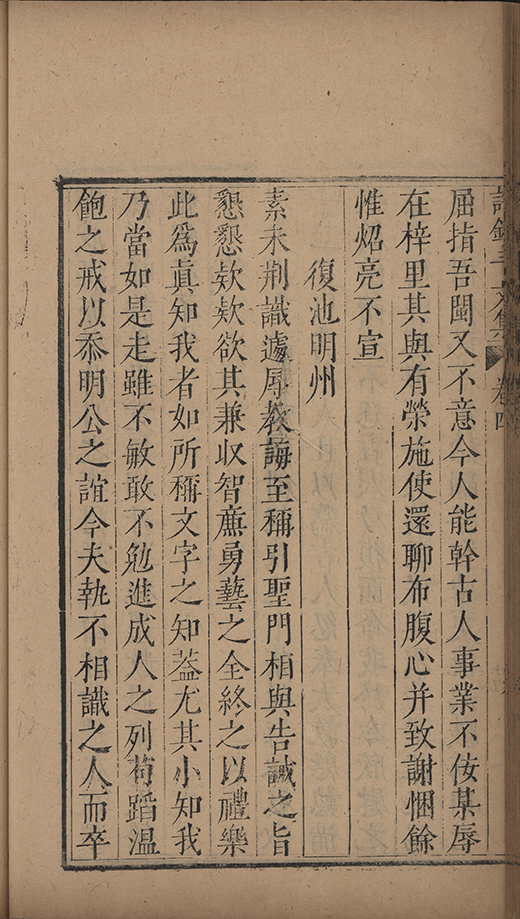 屈指吾閩又不意今人能幹古人事業不佞某辱
在梓里其與有榮施使還聊布腹心并致謝悃餘
惟炤亮不宣
復池明州
素未荆識遽辱教誨至稱引聖門相與告誡之旨
懇懇欵欵欲其兼収智亷勇藝之全終之以禮樂
此爲眞知我者如所稱文字之知葢尤其小知我
乃當如是走雖不敏敢不勉進成人之列茍蹈温
飽之戒以忝明公之誼今夫執不相識之人而卒
卷四